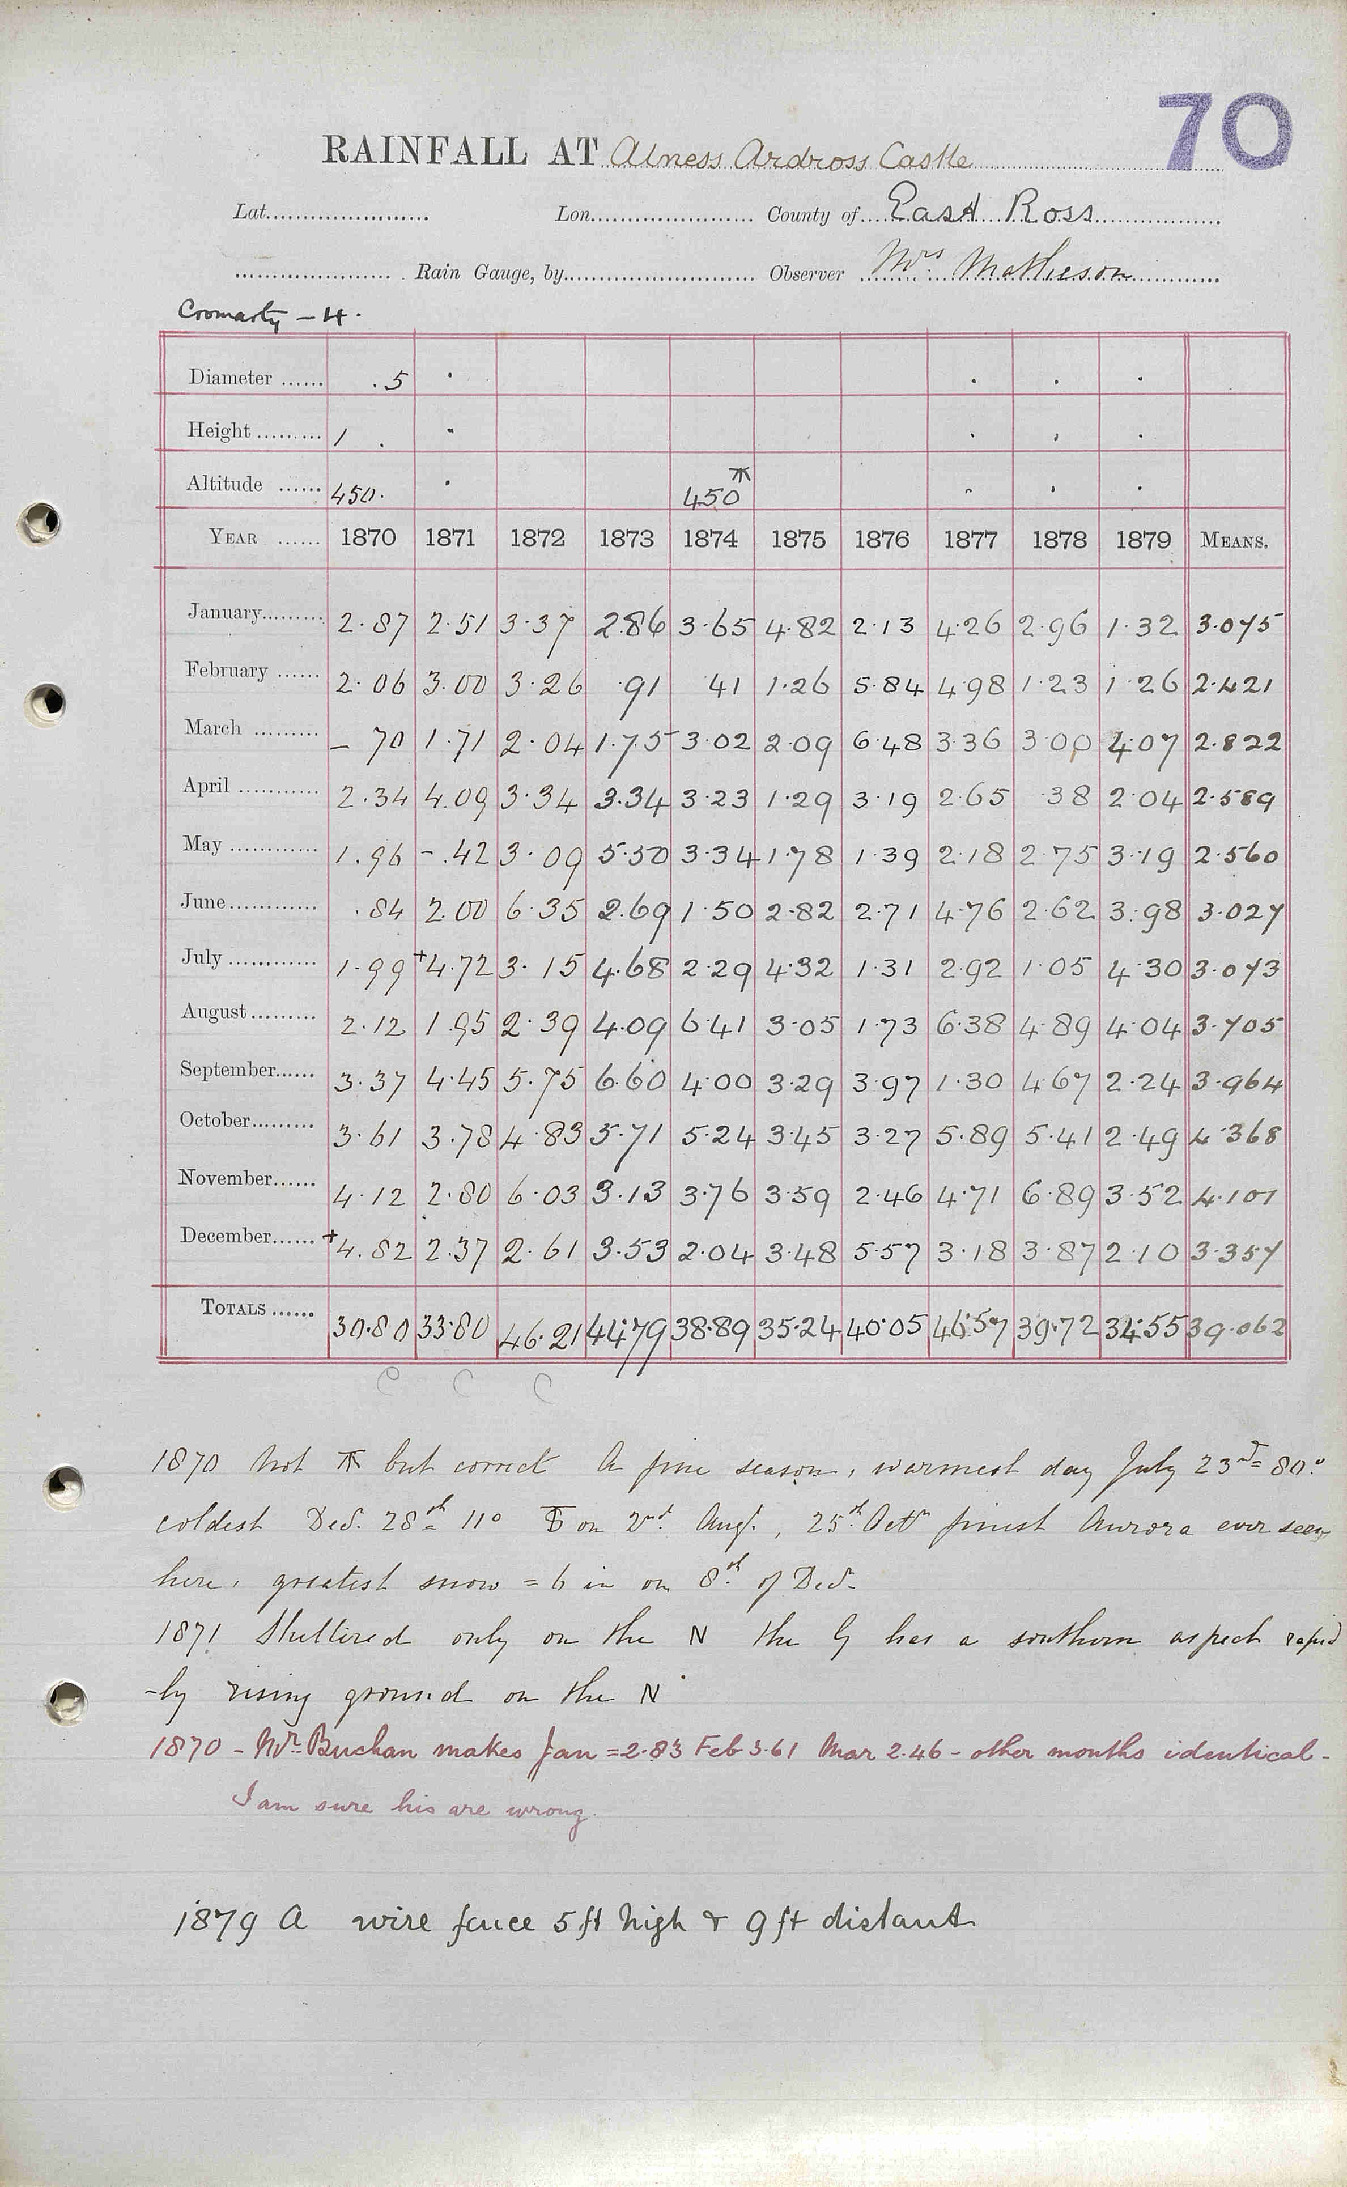 70
RAINFALL AT Alness Ardross Castle
Lat. Lon. County of East Ross
Rain Gauge, by Observer Mrs Matheson
Cromarty - 4.
Diameter .5 . . . .
Height 1 . . . . .
Altitude 450. . 450 ⚹ . . .
YEAR 1870 1871 1872 1873 1874 1875 1876 1877 1878 1879 MEANS.
January 2.87 2.51 3.37 2.86 3.65 4.82 2.13 4.26 2.96 1.32 3.075
February 2.06 3.00 3.26 .91 .41 1.26 5.84 4.98 1.23 1.26 2.421
March - 70 1.71 2.04 1.75 3.02 2.09 6.48 3.36 3.00 4.07 2.822
April 2.34 4.09 3.34 3.34 3.23 1.29 3.19 2.65 .38 2.04 2.589
May 1.96 -.42 3.09 5.50 3.34 1.78 1.39 2.18 2.75 3.19 2.560
June .84 2.00 6.35 2.69 1.50 2.82 2.71 4.76 2.62 3.98 3.027
July 1.99 +4.72 3.15 4.68 2.29 4.32 1.31 2.92 1.05 4.30 3.073
August 2.12 1.95 2.39 4.09 6.41 3.05 1.73 6.38 4.89 4.04 3.705
September 3.37 4.45 5.75 6.60 4.00 3.29 3.97 1.30 4.67 2.24 3.964
October 3.61 3.78 4.83 5.71 5.24 3.45 3.27 5.89 5.41 2.49 4.368
November 4.12 2.80 6.03 3.13 3.76 3.59 2.46 4.71 6.89 3.52 4.101
December +4.82 2.37 2.61 3.53 2.04 3.48 5.57 3.18 3.87 2.10 3.357
TOTALS 30.80 33.80 46.21 44.79 38.89 35.24 40.05 46.57 39.72 34.55 39.062
C C C
1870 Not ⚹ but correct A fine season, warmest day July 23rd = 80°
coldest Dec. 28th 11° on 2nd Aug., 25th Octr finest Aurora ever seen
here, greatest snow = 6 in on 8th of Dec.
1871 Sheltered only on the N the G has a southern aspect rapid
-ly rising ground on the N
1870 - Mr Buchan makes Jan = 2.83 Feb 3.61 Mar 2.46 - other months identical -
I am sure his are wrong.
1879 A wire fence 5 ft high & 9 ft distant